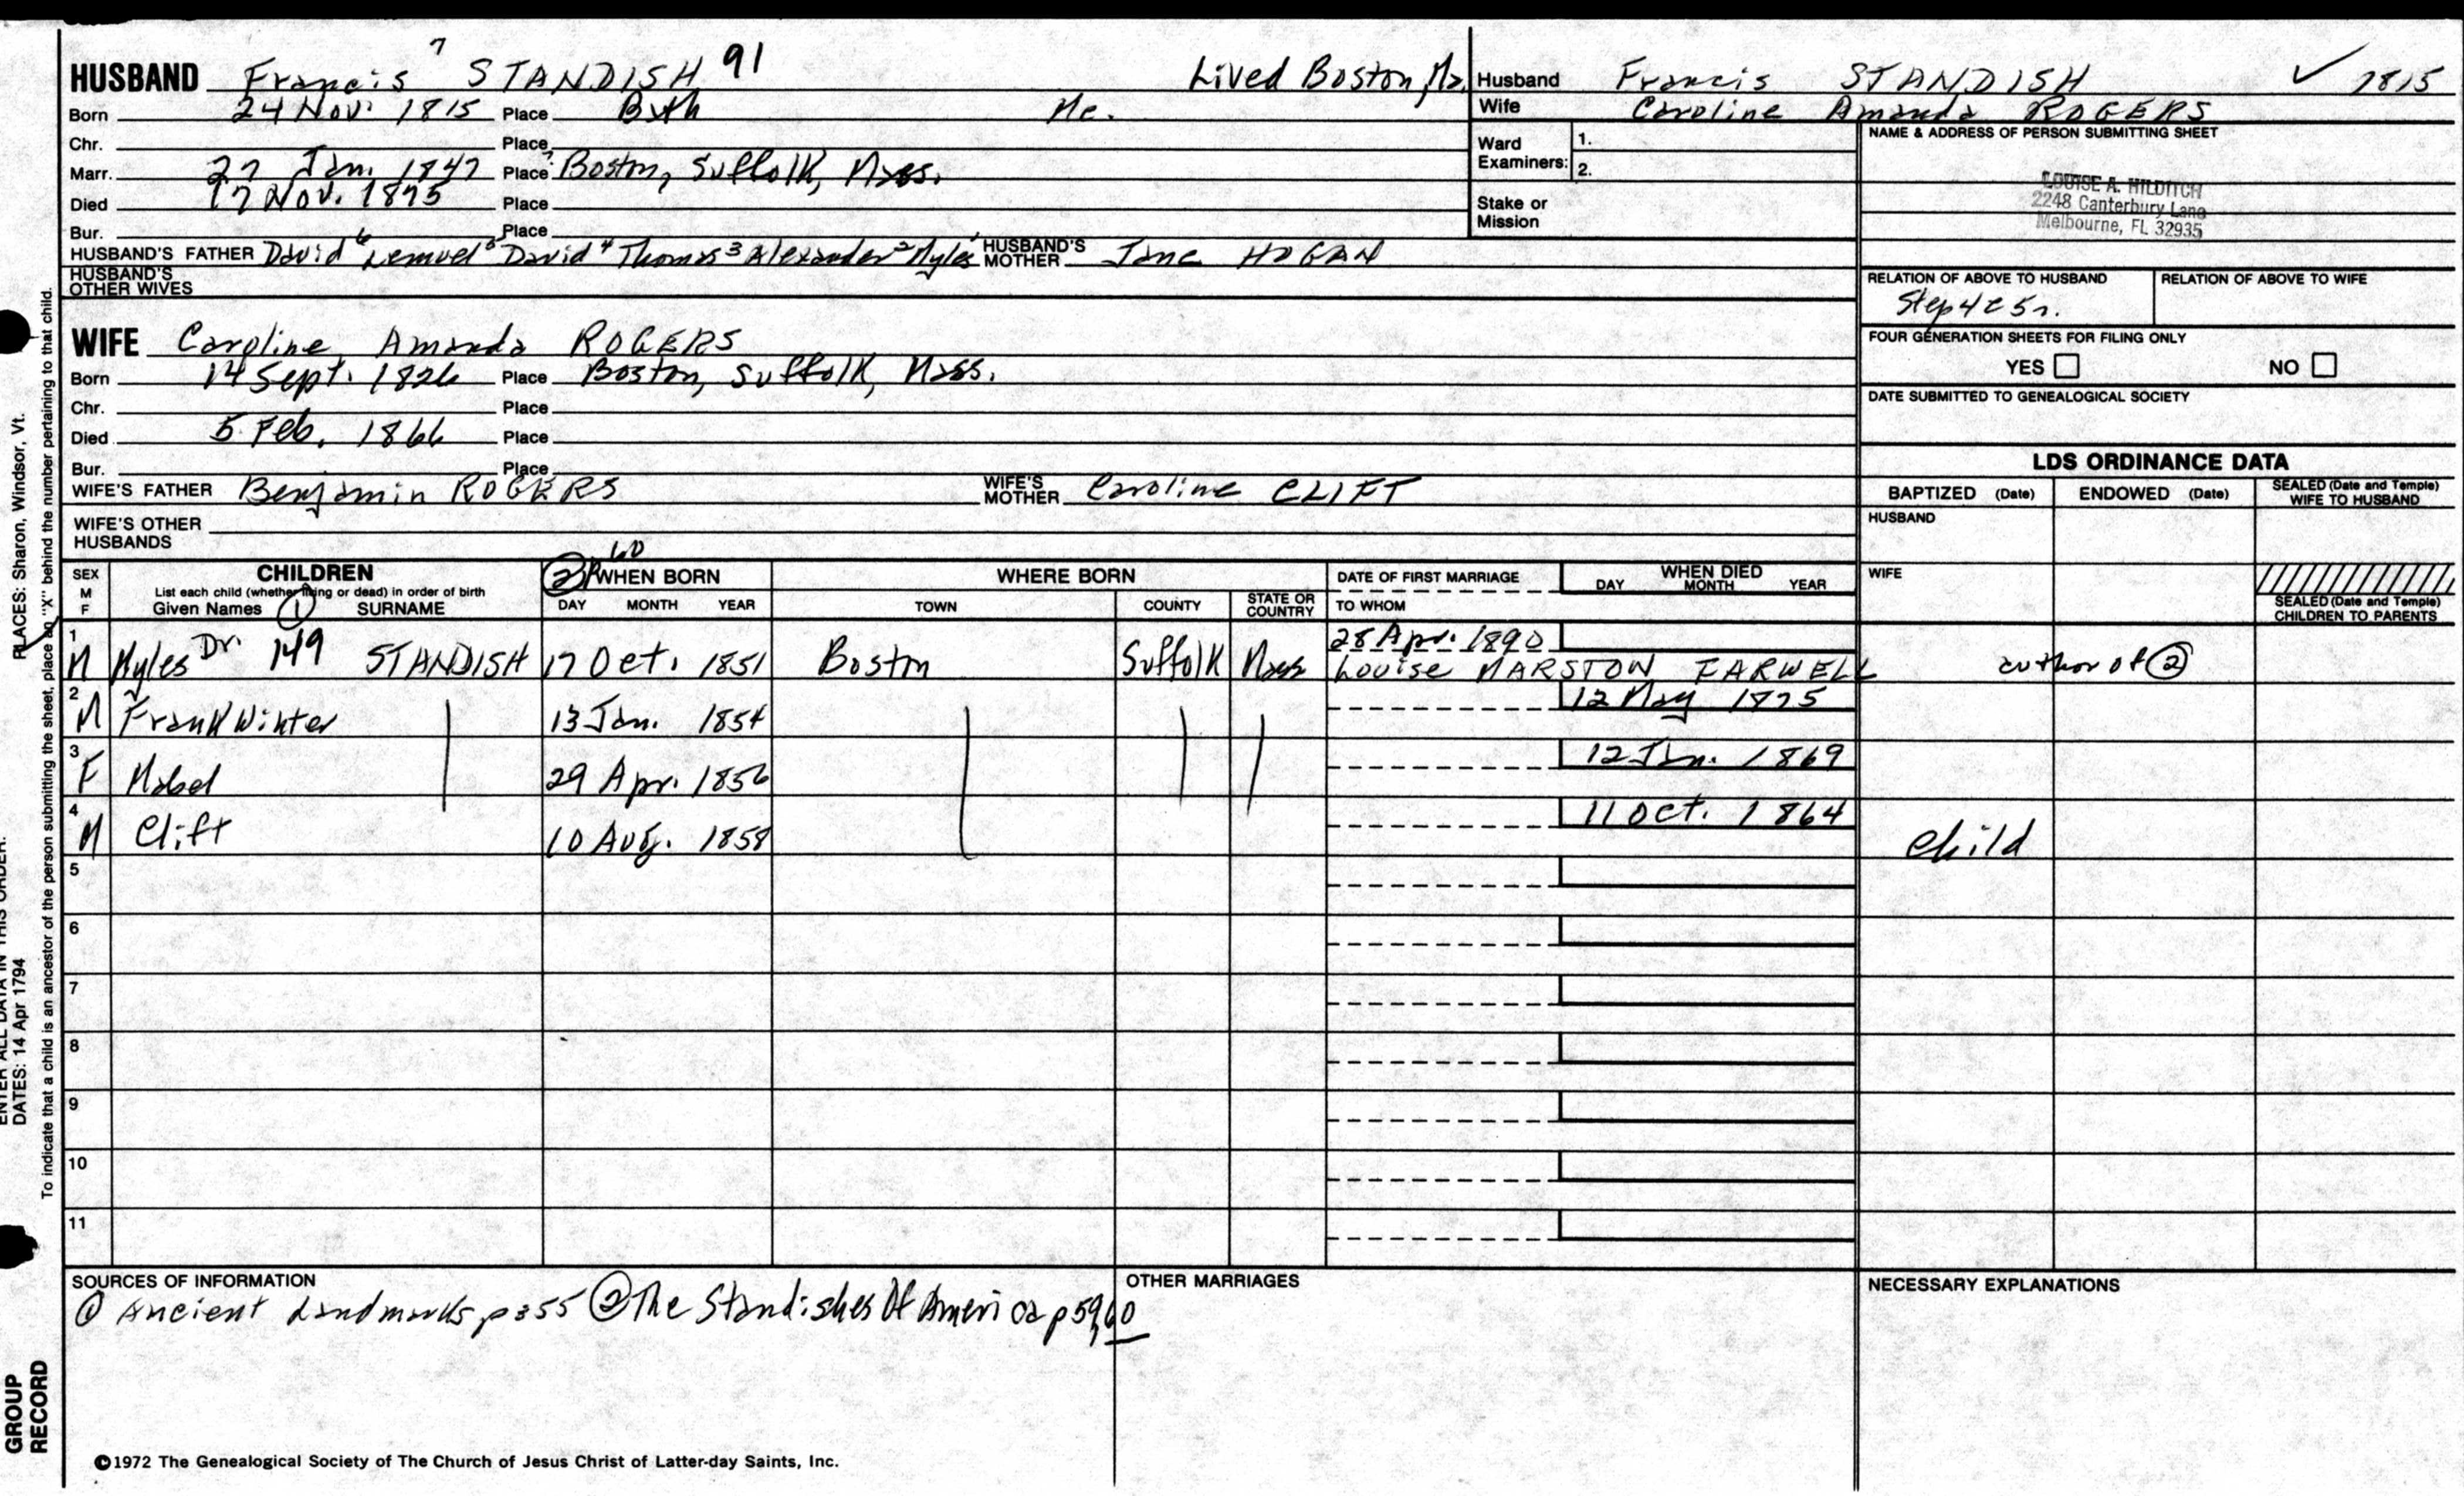 HUSBAND Francis 7 STANDISH 91 Lived Boston, Ma.
Born 24 Nov. 1815 Place Bath Me.
Chr. Place
Marr. 27 Jan. 1847 Place ? Boston, Suffolk, Mass.
Died 17 Nov. 1875 Place
Bur. Place
HUSBAND'S FATHER David 6 Lemuel 5 David 4 Thomas 3 Alexander 2 Myles 1 HUSBAND'S MOTHER Jane HOGAN
HUSBAND'S OTHER WIVES
Husband Francis STANDISH ✓ 1815
Wife Caroline Amanda ROGERS
Ward Examiners: 1.
2.
Stake or Mission
NAME & ADDRESS OF PERSON SUBMITTING SHEET
LOUISE A. HILDITCH
2248 Canterbury Lane
Melbourne, FL 32935
RELATION OF ABOVE TO HUSBAND RELATION OF ABOVE TO WIFE
Step 4 c 5 r.
FOUR GENERATION SHEETS FOR FILING ONLY
YES NO
DATE SUBMITTED TO GENEALOGICAL SOCIETY
WIFE Caroline Amanda ROGERS
Born 14 Sept. 1826 Place Boston, Suffolk, Mass.
Chr. Place
Died 5 Feb. 1866 Place
Bur. Place
WIFE'S FATHER Benjamin ROGERS WIFE'S MOTHER Caroline CLIFT
WIFE'S OTHER HUSBANDS
LDS ORDINANCE DATA
BAPTIZED (Date) ENDOWED (Date) SEALED (Date and Temple) WIFE TO HUSBAND
HUSBAND
WIFE
SEALED (Date and Temple) CHILDREN TO PARENTS
SEX M F CHILDREN
List each child (whether living or dead) in order of birth
Given Names ① SURNAME
② p 60 WHEN BORN
DAY MONTH YEAR
WHERE BORN
TOWN COUNTY STATE OR COUNTRY
DATE OF FIRST MARRIAGE
TO WHOM
WHEN DIED
DAY MONTH YEAR
1 M Myles Dr. 149 STANDISH 17 Oct. 1851 Boston Suffolk Mass 28 Apr. 1890
Louise MARSTON FARWELL author of ②
2 M Frank Winter 13 Jan. 1854 12 May 1875
3 F Mabel 29 Apr. 1856 12 Jan. 1869
4 M Clift 10 Aug. 1858 11 Oct. 1864 child
5
6
7
8
9
10
11
SOURCES OF INFORMATION
① Ancient Landmarks p 355 ② The Standishes Of America p 59, 60
OTHER MARRIAGES
NECESSARY EXPLANATIONS
©1972 The Genealogical Society of The Church of Jesus Christ of Latter-day Saints, Inc.
PLACES: Sharon, Windsor, Vt.
To indicate that a child is an ancestor of the person submitting the sheet, place an "X" behind the number pertaining to that child.
ENTER ALL DATA IN THIS ORDER:
DATES: 14 Apr 1794
GROUP
RECORD